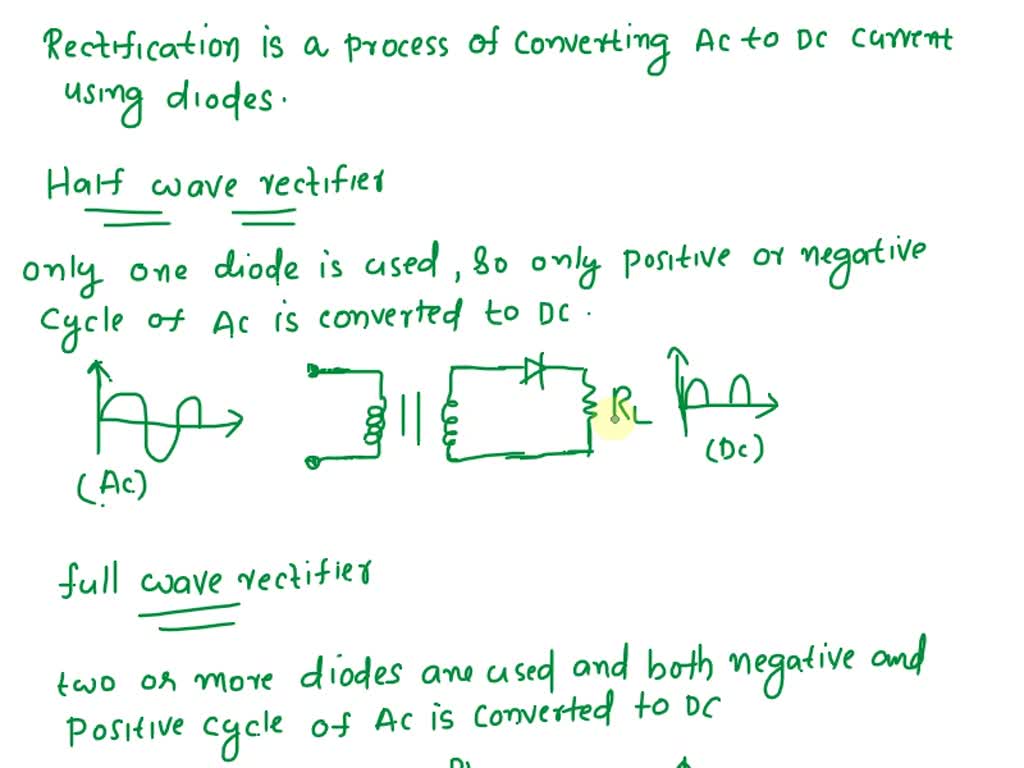 Rectification is a process of converting Ac to DC current
using diodes.
Half wave rectifier
only one diode is used, so only positive or negative
cycle of Ac is converted to DC.
RL
(Ac)
(Dc)
full wave rectifier
two or more diodes are used and both negative and
Positive cycle of Ac is converted to DC